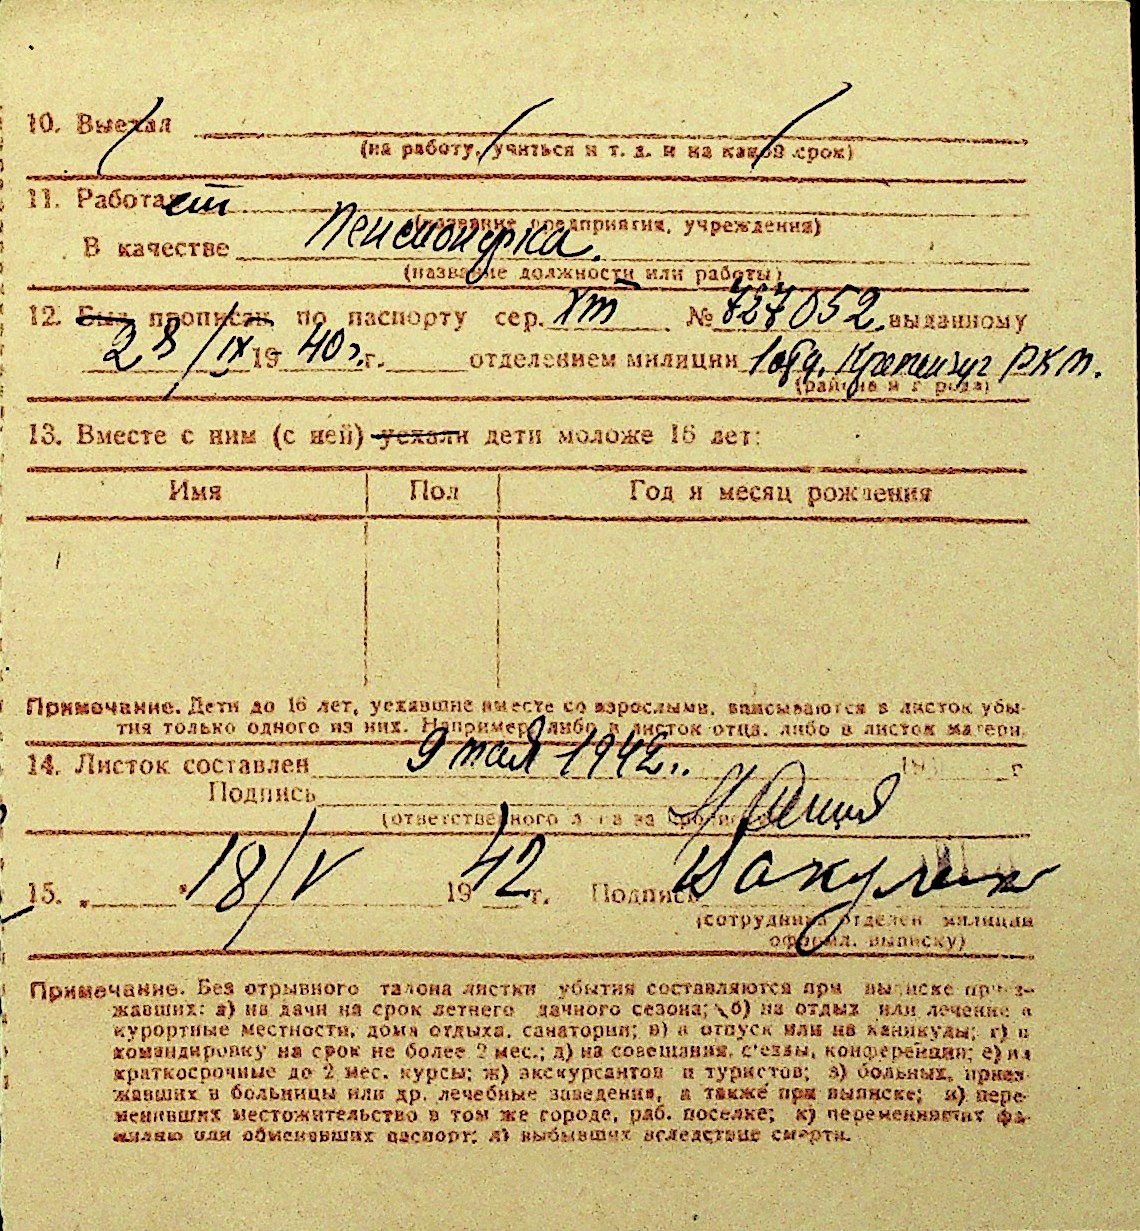 10. Выехал
(на работу, учиться и т. д. и на какой срок)
11. Работает
(название предприятия, учреждения)
В качестве Пенсионерка.
(название должности или работы)
12. Был прописан по паспорту сер. № 727052 выданному
28/IX 1940 г. г. отделением милиции 1 отд. Кременчуг РКМ.
(района и города)
13. Вместе с ним (с ней) уехали дети моложе 16 лет:
Имя Пол Год и месяц рождения
Примечание. Дети до 16 лет, уехавшие вместе со взрослыми, вписываются в листок убы-
тия только одного из них. Например: либо в листок отца, либо в листок матери.
14. Листок составлен 9 мая 1942 г. 19 г
Подпись
(ответственного лица за прописку)
15. „ " 18/V 1942 г. Подпись
(сотрудника отделен. милиции
оформл. выписку)
Примечание. Без отрывного талона листки убытия составляются при выписке приез-
жавших: а) на дачи на срок летнего дачного сезона; б) на отдых или лечение в
курортные местности, дома отдыха, санатории; в) в отпуск или на каникулы; г) в
командировку на срок не более 2 мес.; д) на совещания, с'езды, конференции; е) на
краткосрочные до 2 мес. курсы; ж) экскурсантов и туристов; з) больных, приез-
жавших в больницы или др. лечебные заведения, а также при выписке; и) пере-
менивших местожительство в том же городе, раб. поселке; к) переменивших фа-
милию или обменявших паспорт; л) выбывших вследствие смерти.